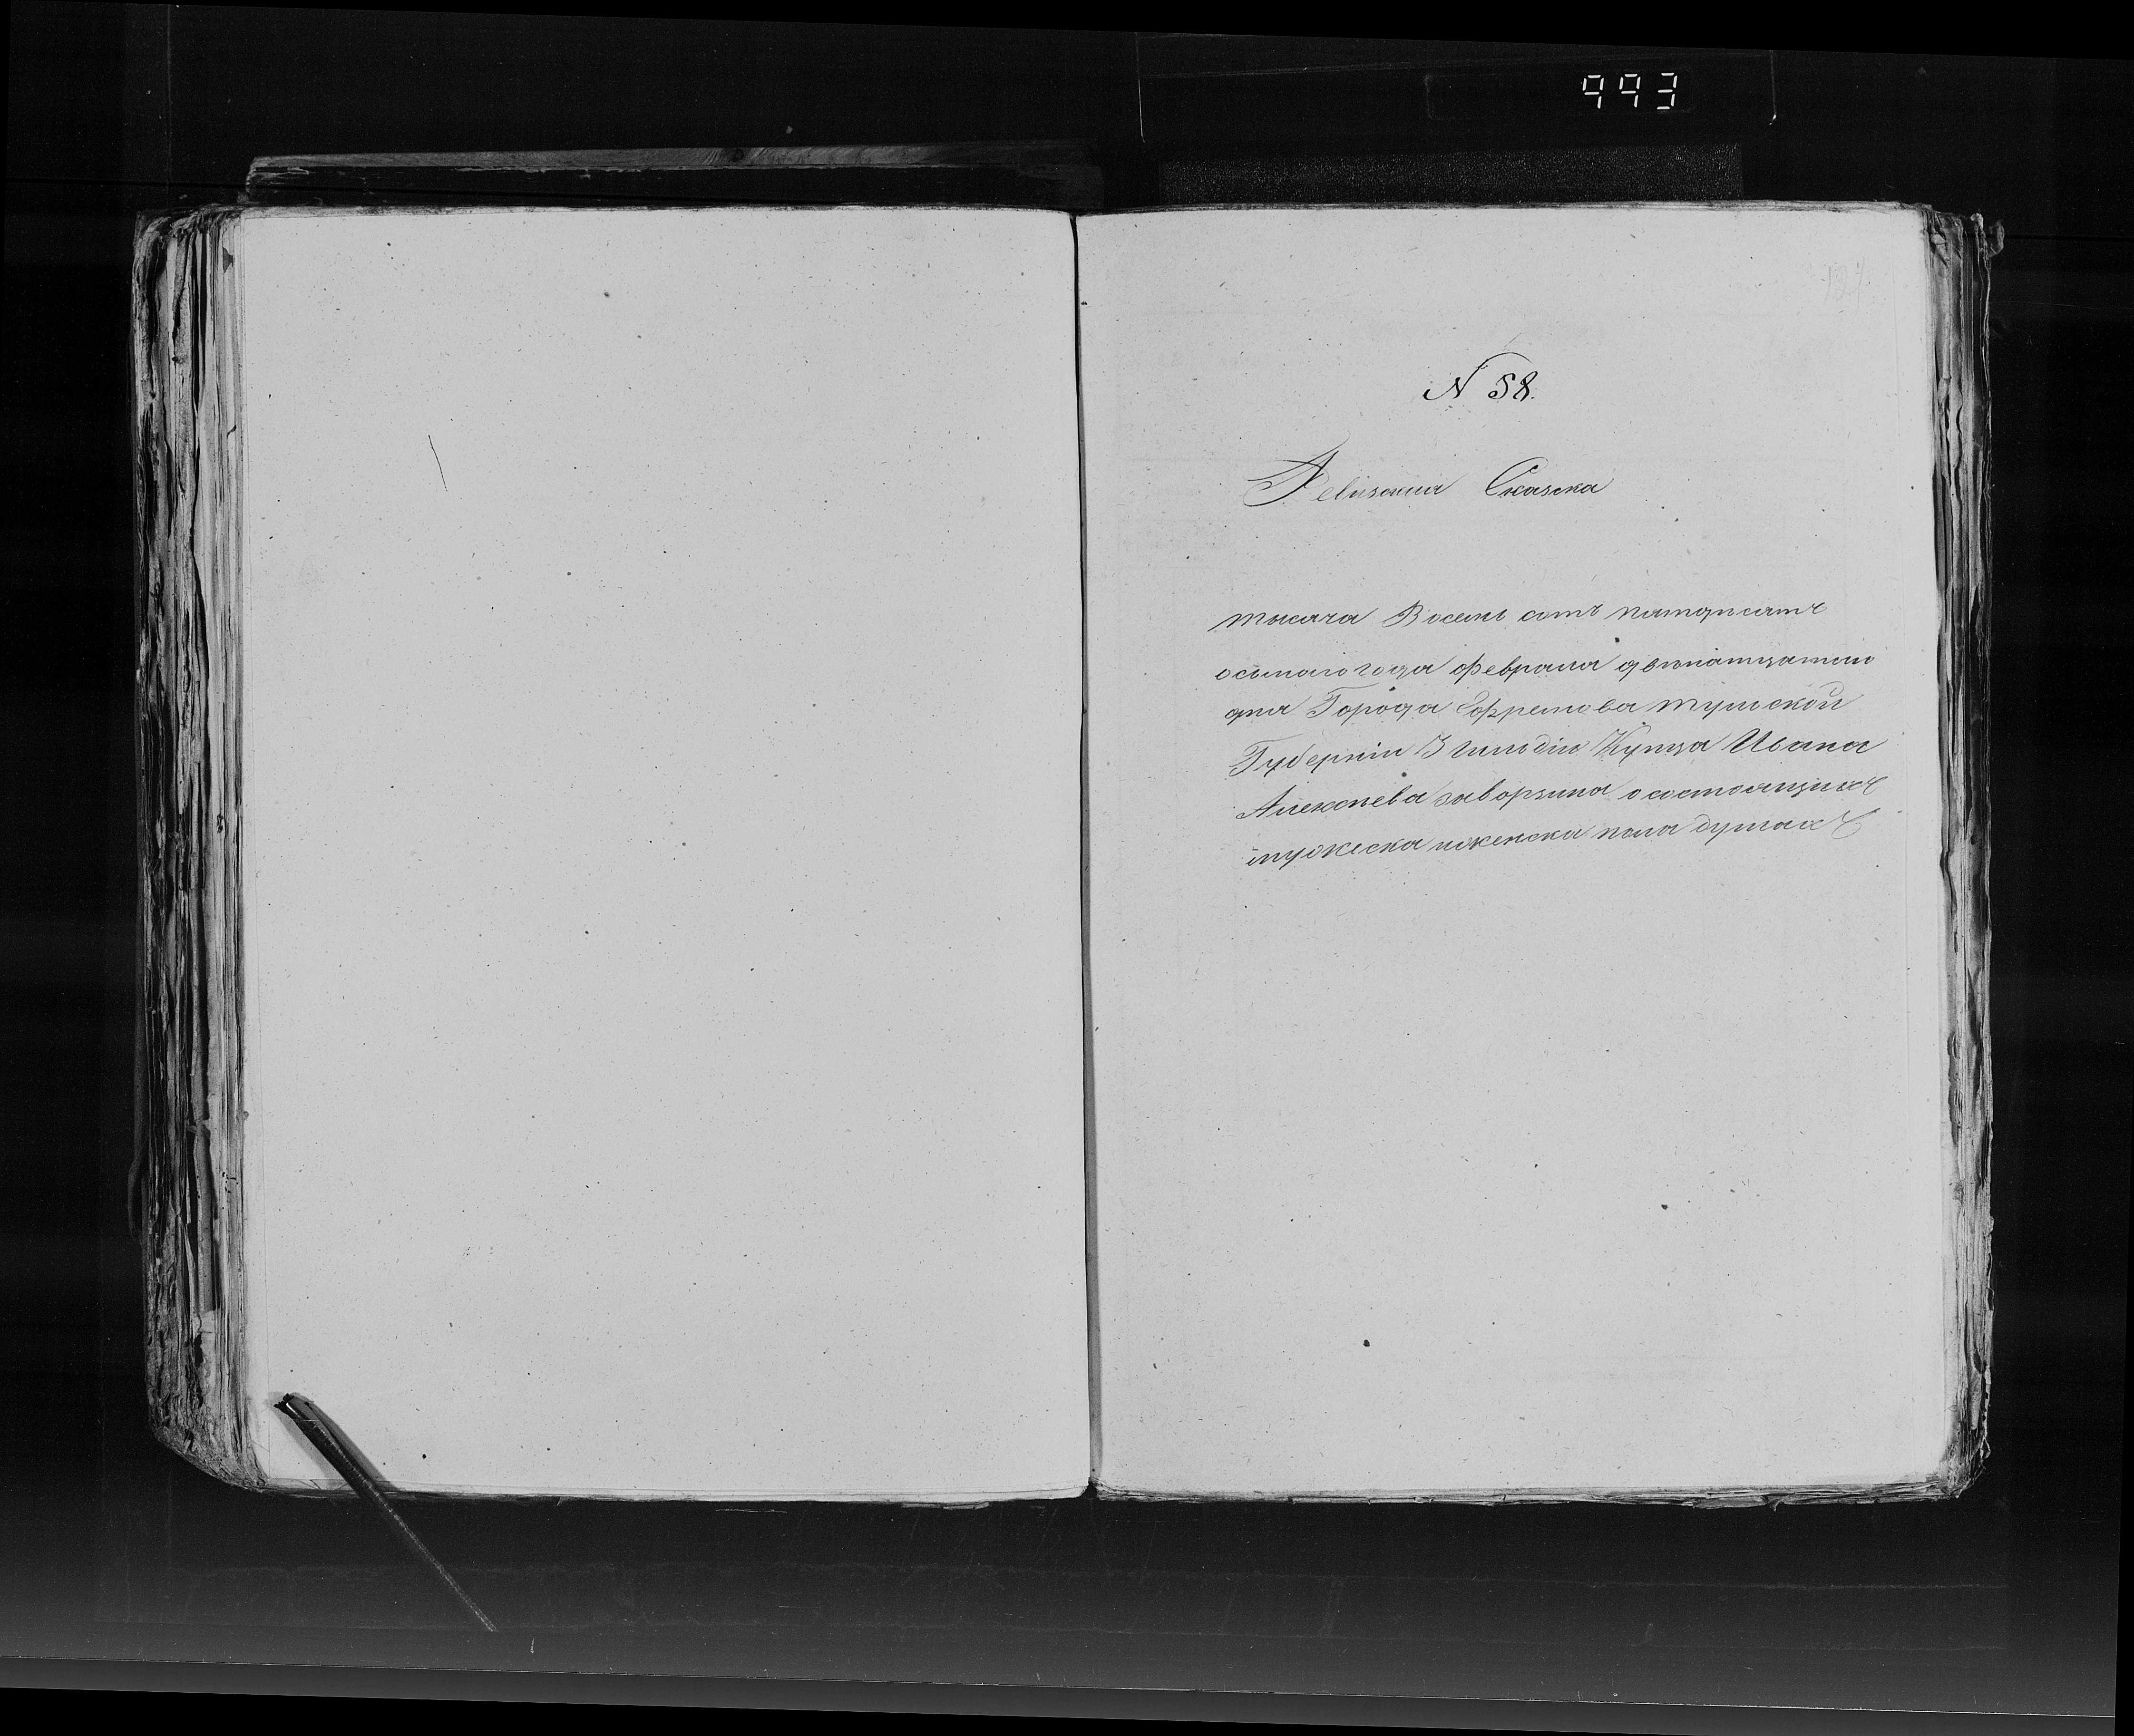 993
N 58.
Ревизская Сказка
тысяча Восемь сотъ пятдисятъ
осьмого года февраля двенатцатаго
дня Города Ефремова тульской
Губерніи 3 гильдіи Купца Ивана
Алексѣева заворзина о состоящихъ
мужеска ижекска пола душахъ